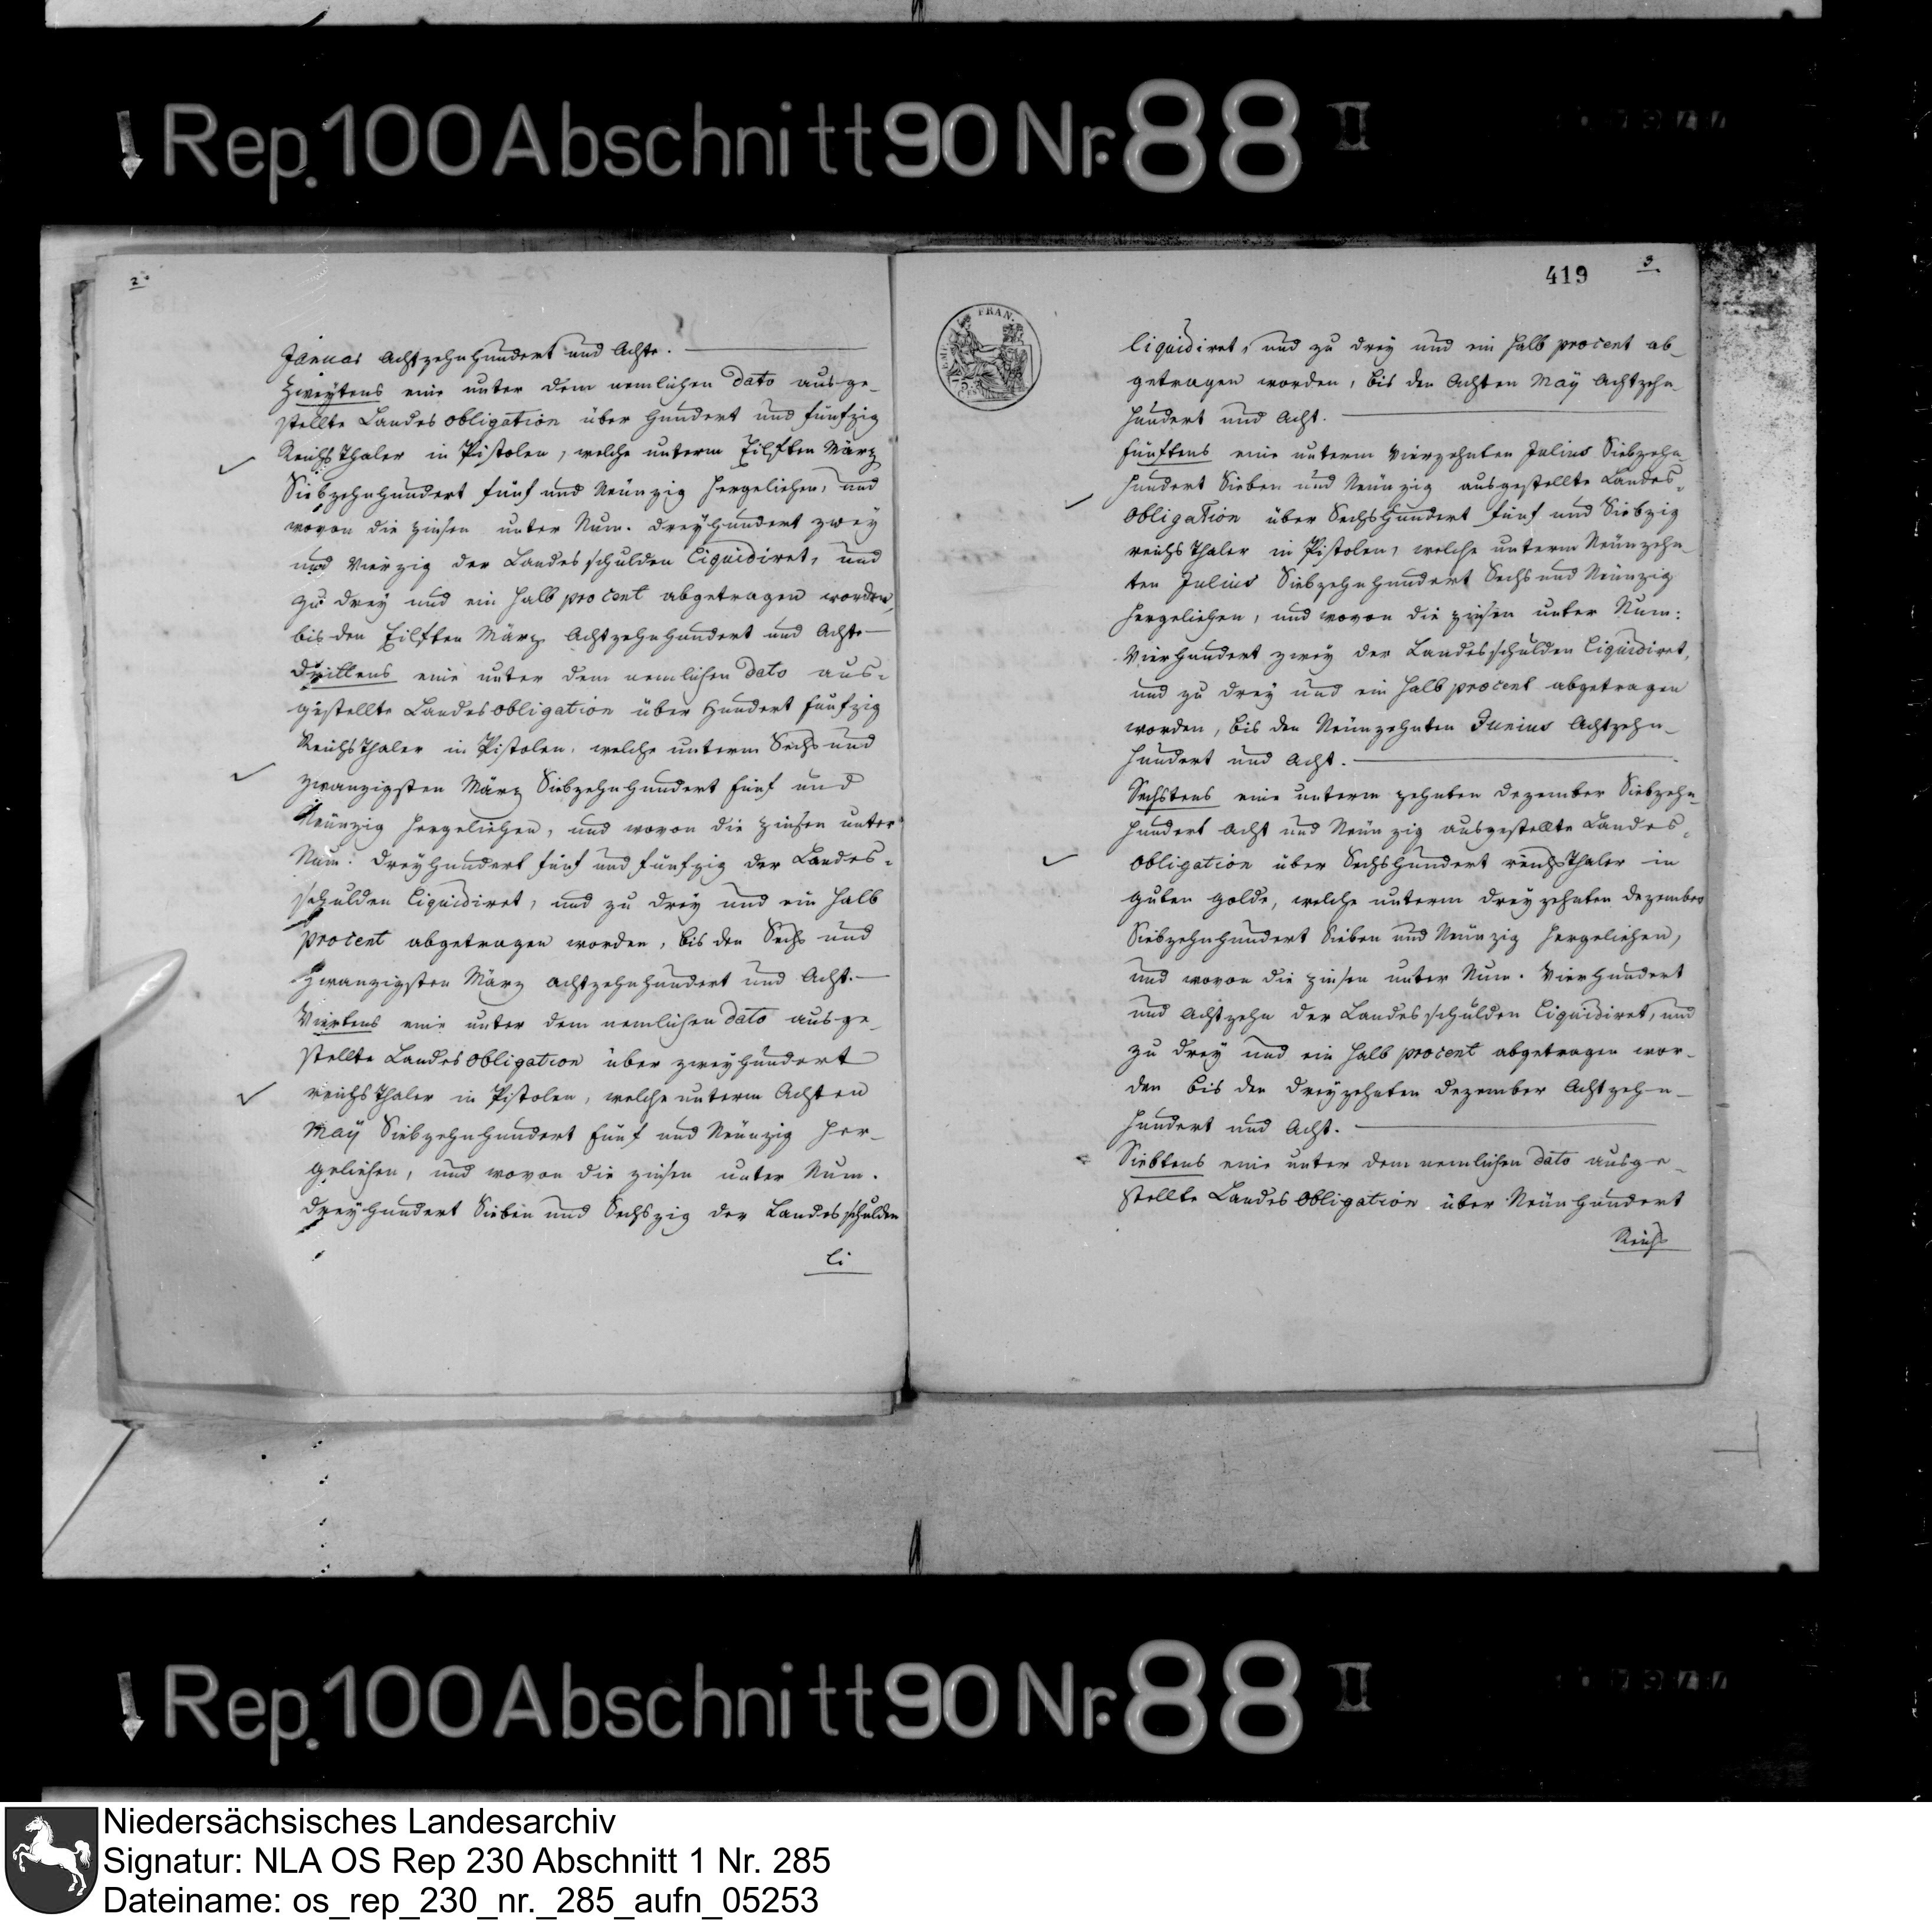 Rep. 100 Abschnitt 90 Nr. 88 II
2.
Januar Achtzehnhundert und Acht.
Zweytens eine unter dem nemlichen dato ausge-
stellte Landes obligation über Hundert und fünfzig
Reichsthaler in Pistolen, welche unterm Eilften März
Siebzehnhundert fünf und Neünzig hergeliehen, und
wovon die Zinsen unter Num. dreyhundert zwey
und vierzig der Landesschulden liquidiret, und
zu drey und ein halb procent abgetragen worden,
bis den Eilften März Achtzehnhundert und Acht
drittens eine unter dem nemlichen dato aus-
gestellte Landesobligation über Hundert fünfzig
Reichsthaler in Pistolen, welche unterm Sechs und
zwanzigsten März Siebzehnhundert fünf und
Neünzig hergeliehen, und wovon die Zinsen unter
Num: dreyhundert fünf und fünfzig der Landes-
schulden liquidiret, und zu drey und ein halb
procent abgetragen worden, bis den Sechs und
zwanzigsten März achtzehnhundert und Acht.
Viertens eine unter dem nemlichen dato ausge-
stellte Landesobligation über zweyhundert
reichsthaler in Pistolen, welche unterm Achten
May Siebzehnhundert fünf und Neünzig her-
geliehen, und wovon die Zinsen unter Num.
dreyhundert Sieben und Sechszig der Landesschulden
li
419
3.
EMP. FRAN.
liquidiret, und zu drey und ein halb procent ab-
getragen worden, bis den Achten May Achtzehn-
hundert und Acht.
fünftens eine unterm vierzehnten Julius Siebzehn-
hundert Sieben und Neünzig ausgestellte Landes-
obligation über Sechshundert fünf und Siebzig
reichsthaler in Pistolen, welche unterm Neünzehn-
ten Julius Siebzehnhundert Sechs und Neünzig
hergeliehen, und wovon die Zinsen unter Num:
Vierhundert zwey der Landesschulden liquidiret,
und zu drey und ein halb procent abgetragen
worden, bis den Neünzehnten Junius Achtzehn-
hundert und Acht.
Sechstens eine unterm zehnten Dezember Siebzehn-
hundert Acht und Neünzig ausgestellte Landes-
obligation über Sechshundert reichsthaler in
guten golde, welche unterm dreyzehnten Dezember
Siebzehnhundert Sieben und Neünzig hergeliehen,
und wovon die Zinsen unter Num. Vierhundert
und Achtzehn der Landesschulden liquidiret, und
zu drey und ein halb procent abgetragen wor-
den bis den dreyzehnten Dezember Achtzehn-
hundert und Acht.
Siebtens eine unter dem nemlichen dato ausge-
stellte Landesobligation über Neünhundert
Reichs
Rep. 100 Abschnitt 90 Nr. 88 II
Niedersächsisches Landesarchiv
Signatur: NLA OS Rep 230 Abschnitt 1 Nr. 285
Dateiname: os_rep_230_nr._285_aufn_05253